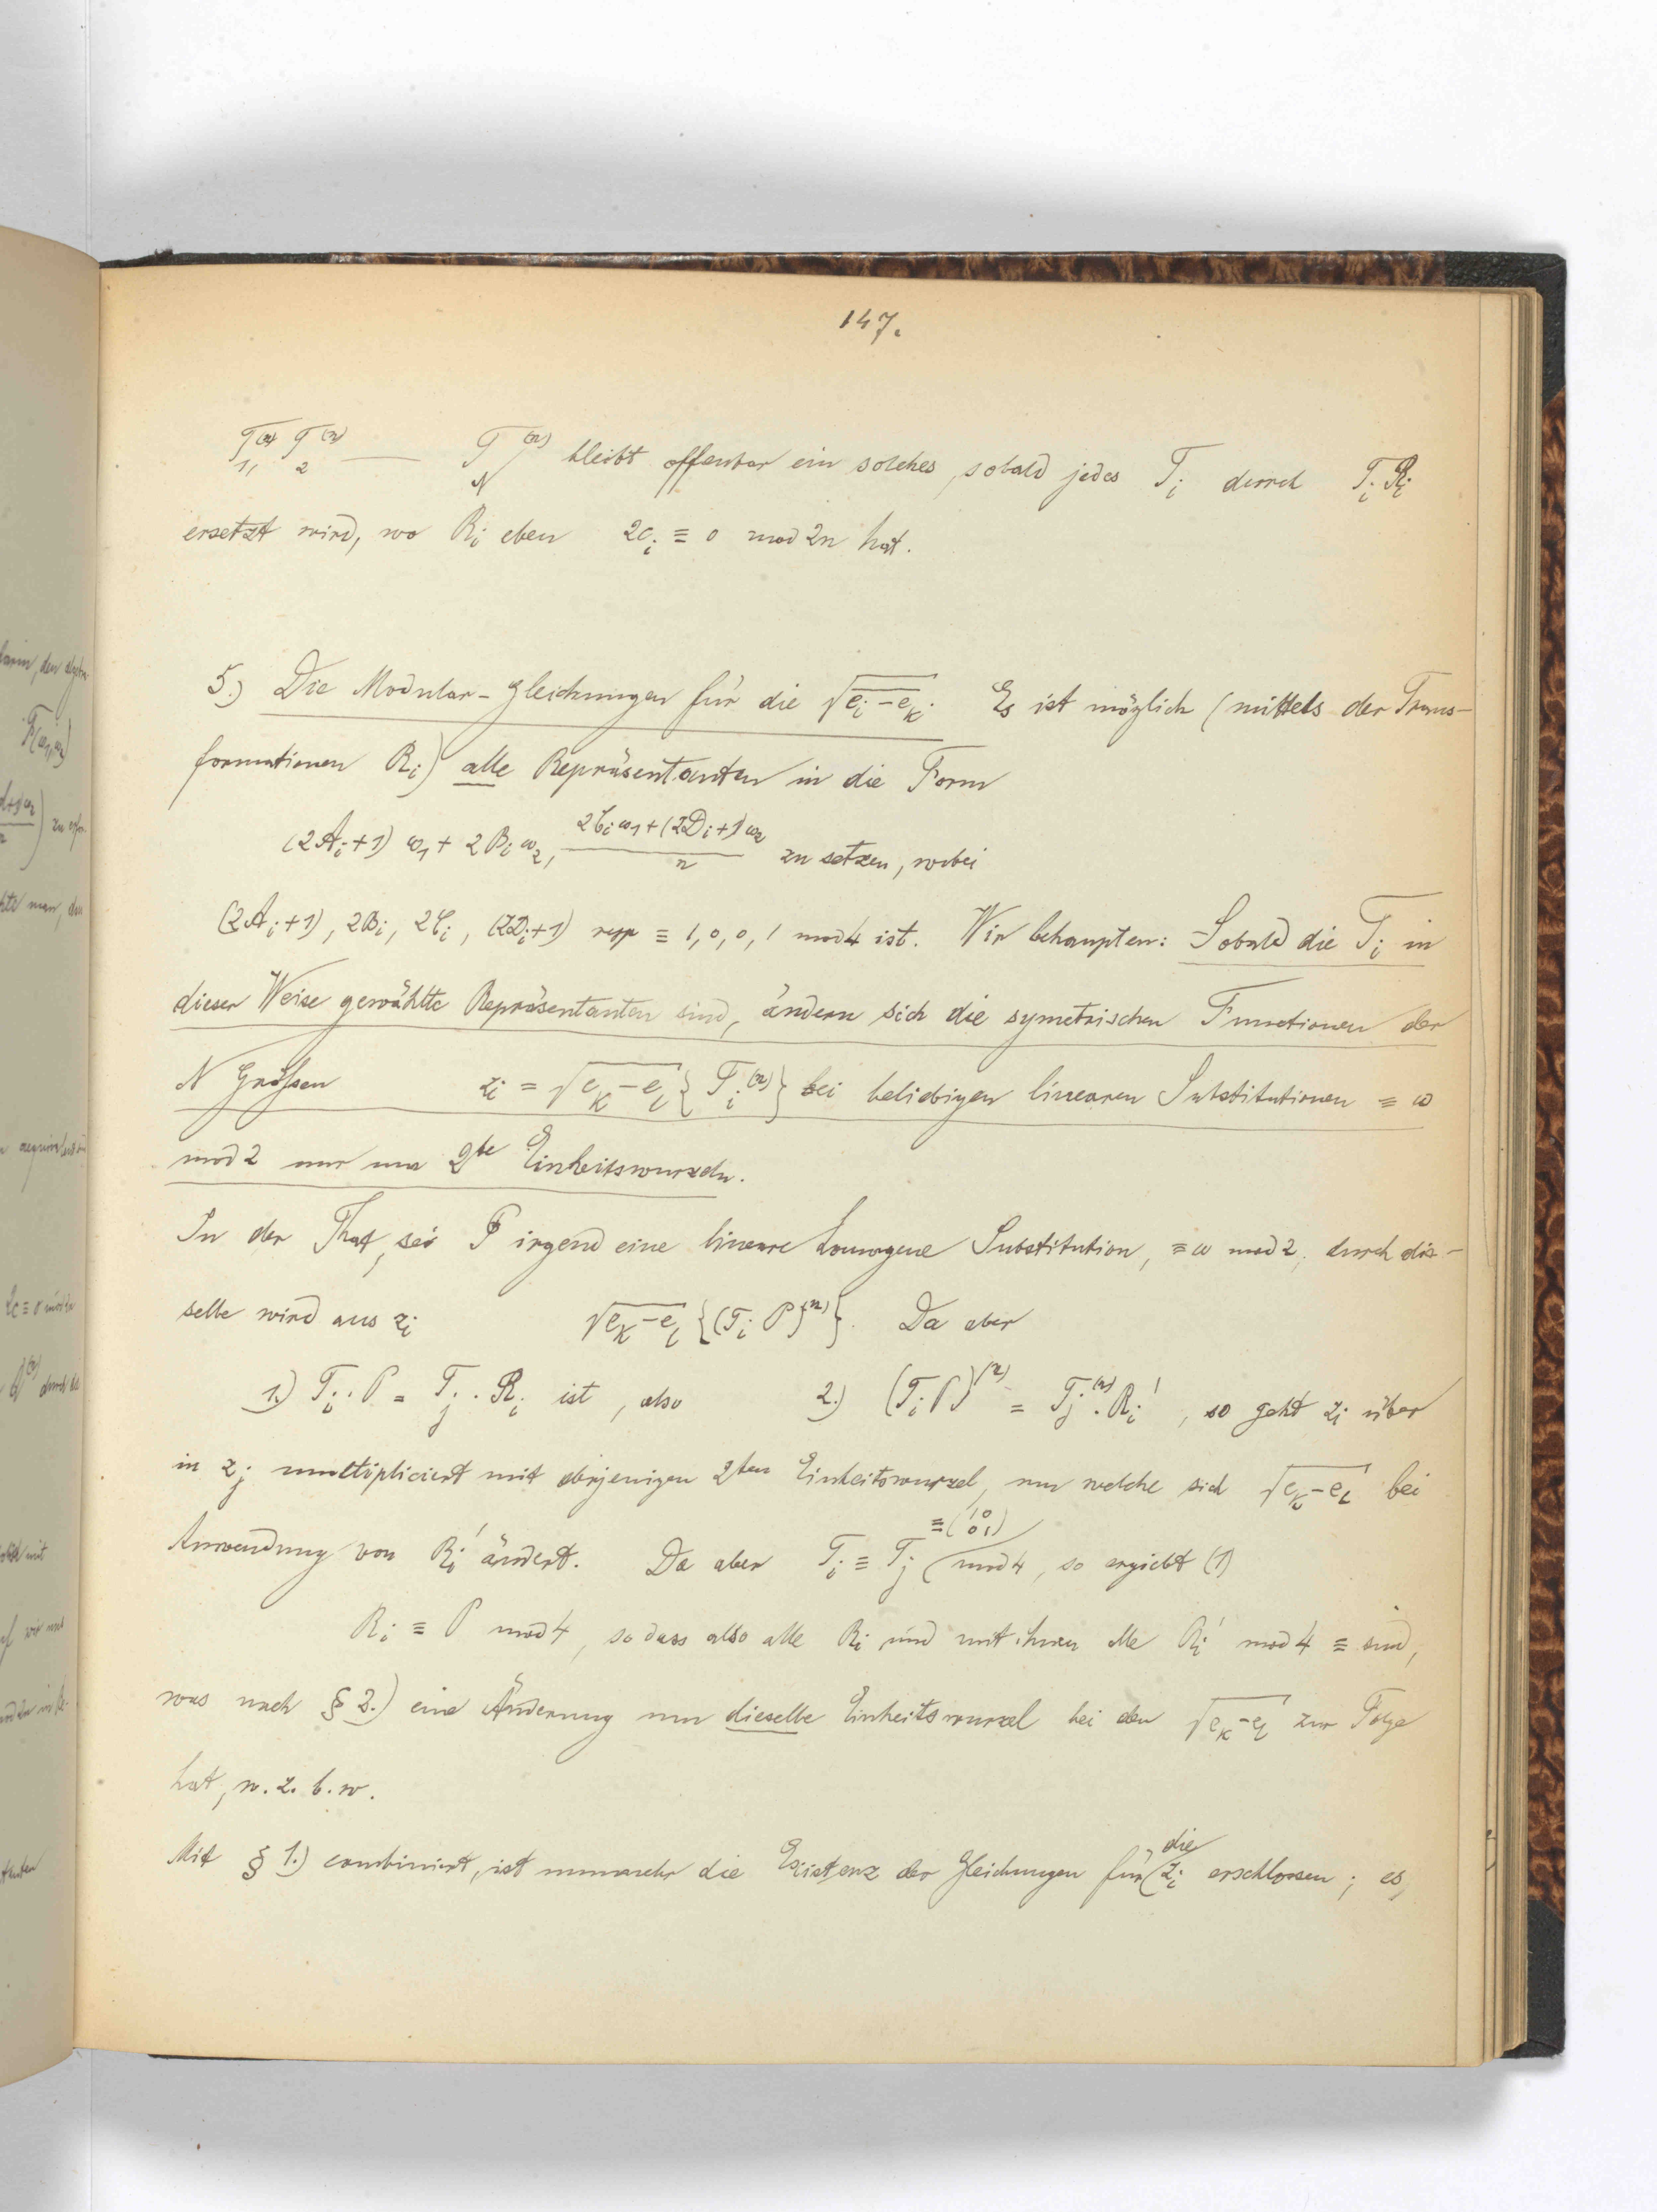 147.
T₁⁽ⁿ⁾, T₂⁽ⁿ⁾ — T_N⁽ⁿ⁾ bleibt offenbar ein solches, sobald jedes T_i durch T_i R_i
ersetzt wird, wo R_i eben 2c_i ≡ 0 mod 2n hat.
5.) Die Modular-Gleichungen für die √(e_i − e_k). Es ist möglich (mittels der Trans-
formationen R_i) alle Repräsentanten in die Form
(2A_i+1) ω₁ + 2B_i ω₂, (2C_i ω₁ + (2D_i+1) ω₂)/n zu setzen, wobei
(2A_i+1), 2B_i, 2C_i, (2D_i+1) resp ≡ 1, 0, 0, 1 mod 4 ist. Wir behaupten: Sobald die T_i in
dieser Weise gewählte Repräsentanten sind, ändern sich die symetrischen Functionen der
N Größen z_i = √(e_k − e_l) {T_i⁽ⁿ⁾} bei beliebigen linearen Substitutionen ≡ ω
mod 2 nur um 2te Einheitswurzeln.
In der That, sei P irgend eine lineare homogene Substitution, ≡ ω mod 2, durch die-
selbe wird aus z_i √(e_k − e_l) {(T_i P)⁽ⁿ⁾}. Da aber
1.) T_i · P = T_j · R_i ist, also 2.) (T_i P)⁽ⁿ⁾ = T_j⁽ⁿ⁾ · R_i′, so geht z_i über
in z_j multipliciert mit derjenigen 2ten Einheitswurzel, um welche sich √(e_k − e_l) bei
Anwendung von R_i′ ändert. Da aber T_i ≡ T_j ≡ (1 0 / 0 1) mod 4, so ergiebt (1)
R_i ≡ P mod 4, so dass also alle R_i und mit ihnen alle R_i′ mod 4 ≡ sind,
was nach § 3.) eine Änderung um dieselbe Einheitswurzel bei den √(e_k − e_l) zur Folge
hat, w. z. b. w.
Mit § 1.) combiniert, ist nunmehr die Existenz der Gleichungen für die z_i erschlossen; es